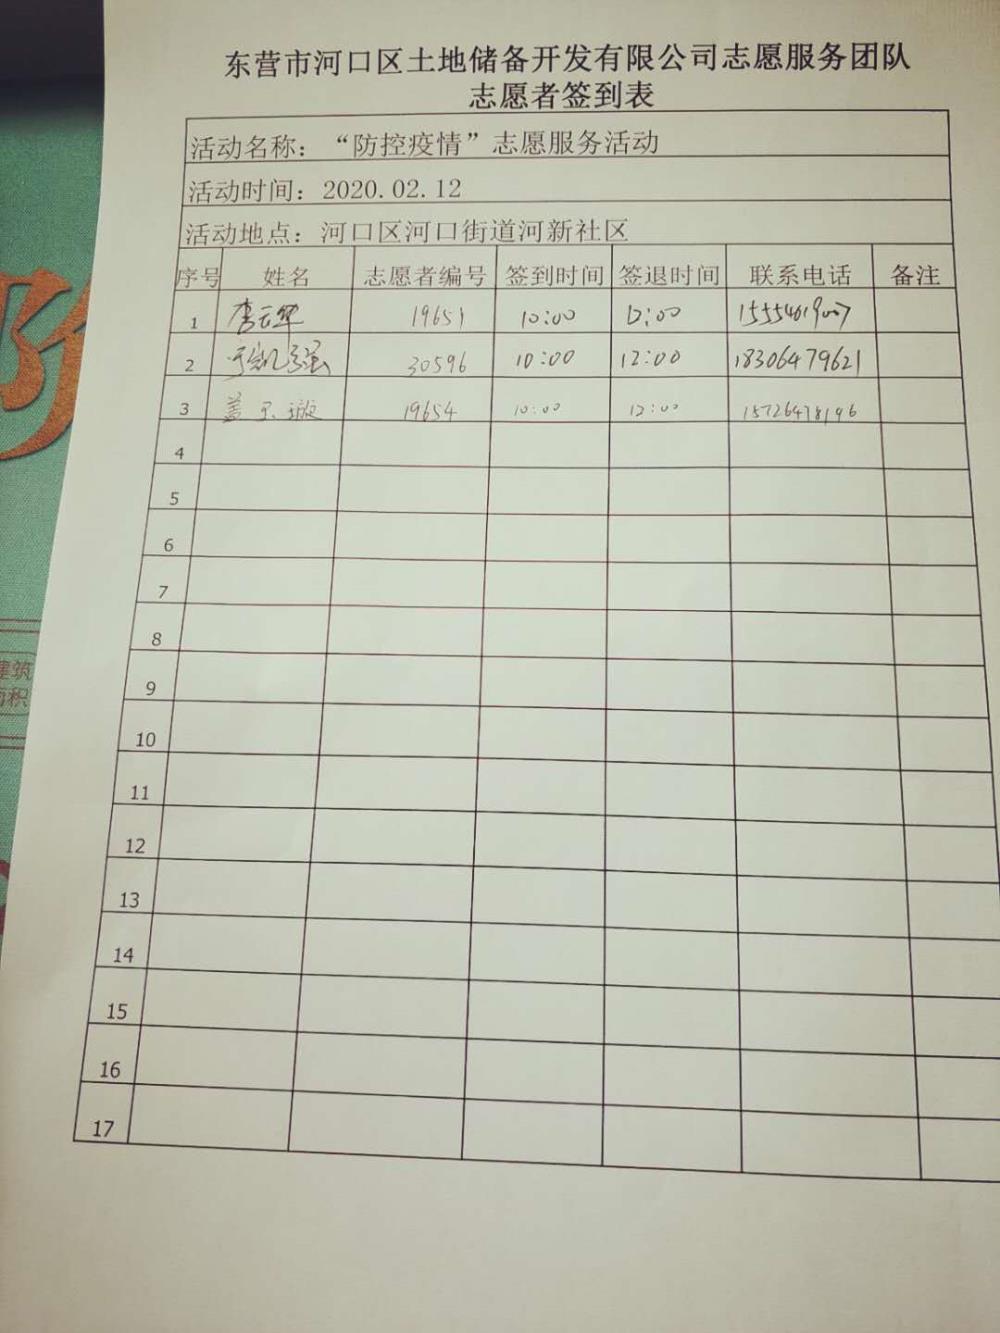 东营市河口区土地储备开发有限公司志愿服务团队
志愿者签到表
活动名称：“防控疫情”志愿服务活动
活动时间：2020.02.12
活动地点：河口区河口街道河新社区
序号 姓名 志愿者编号 签到时间 签退时间 联系电话 备注
1 李云华 19651 10:00 12:00
2 于凯强 30596 10:00 12:00 18306479621
3 盖玉璇 19654 10:00 12:00 15726478196
4
5
6
7
8
9
10
11
12
13
14
15
16
17
建筑
面积